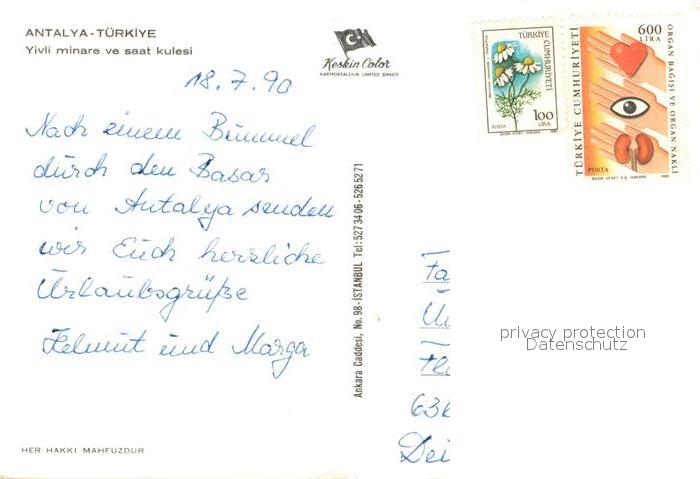 ANTALYA-TÜRKİYE
Yivli minare ve saat kulesi
Keskin Color
KARTPOSTALCILIK LIMITED ŞİRKETİ
18.7.90
Nach einem Bummel
durch den Basar
von Antalya senden
wir Euch herzliche
Urlaubsgrüße
Helmut und Marga
HER HAKKI MAHFUZDUR
Ankara Caddesi, No. 98-İSTANBUL Tel: 527 34 06 - 526 52 71
TÜRKİYE CUMHURİYETİ
100
LİRA
POSTA
600
LİRA
TÜRKİYE CUMHURİYETİ
ORGAN BAĞIŞI VE ORGAN NAKLİ
POSTA
Fa
636
privacy protection
Datenschutz